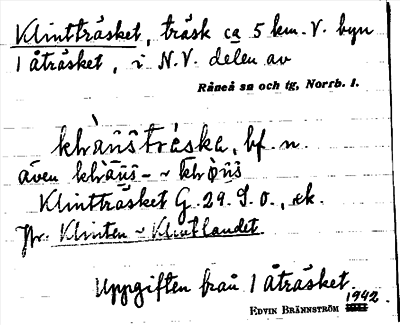 Klintträsket, träsk ca 5 km. V. byn
1 åträsket, i N.V. delen av
Råneå sn och tg, Norrb. l.
bf. n.
även
Klintträsket G. 29. S.O., ek.
Jfr. Klinten ~ Klintlandet.
Uppgiften från 1 åträsket.
1942
EDVIN BRÄNNSTRÖM